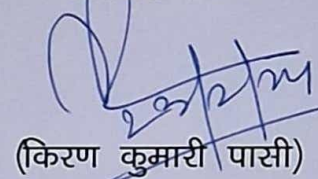 (किरण कुमारी पासी)